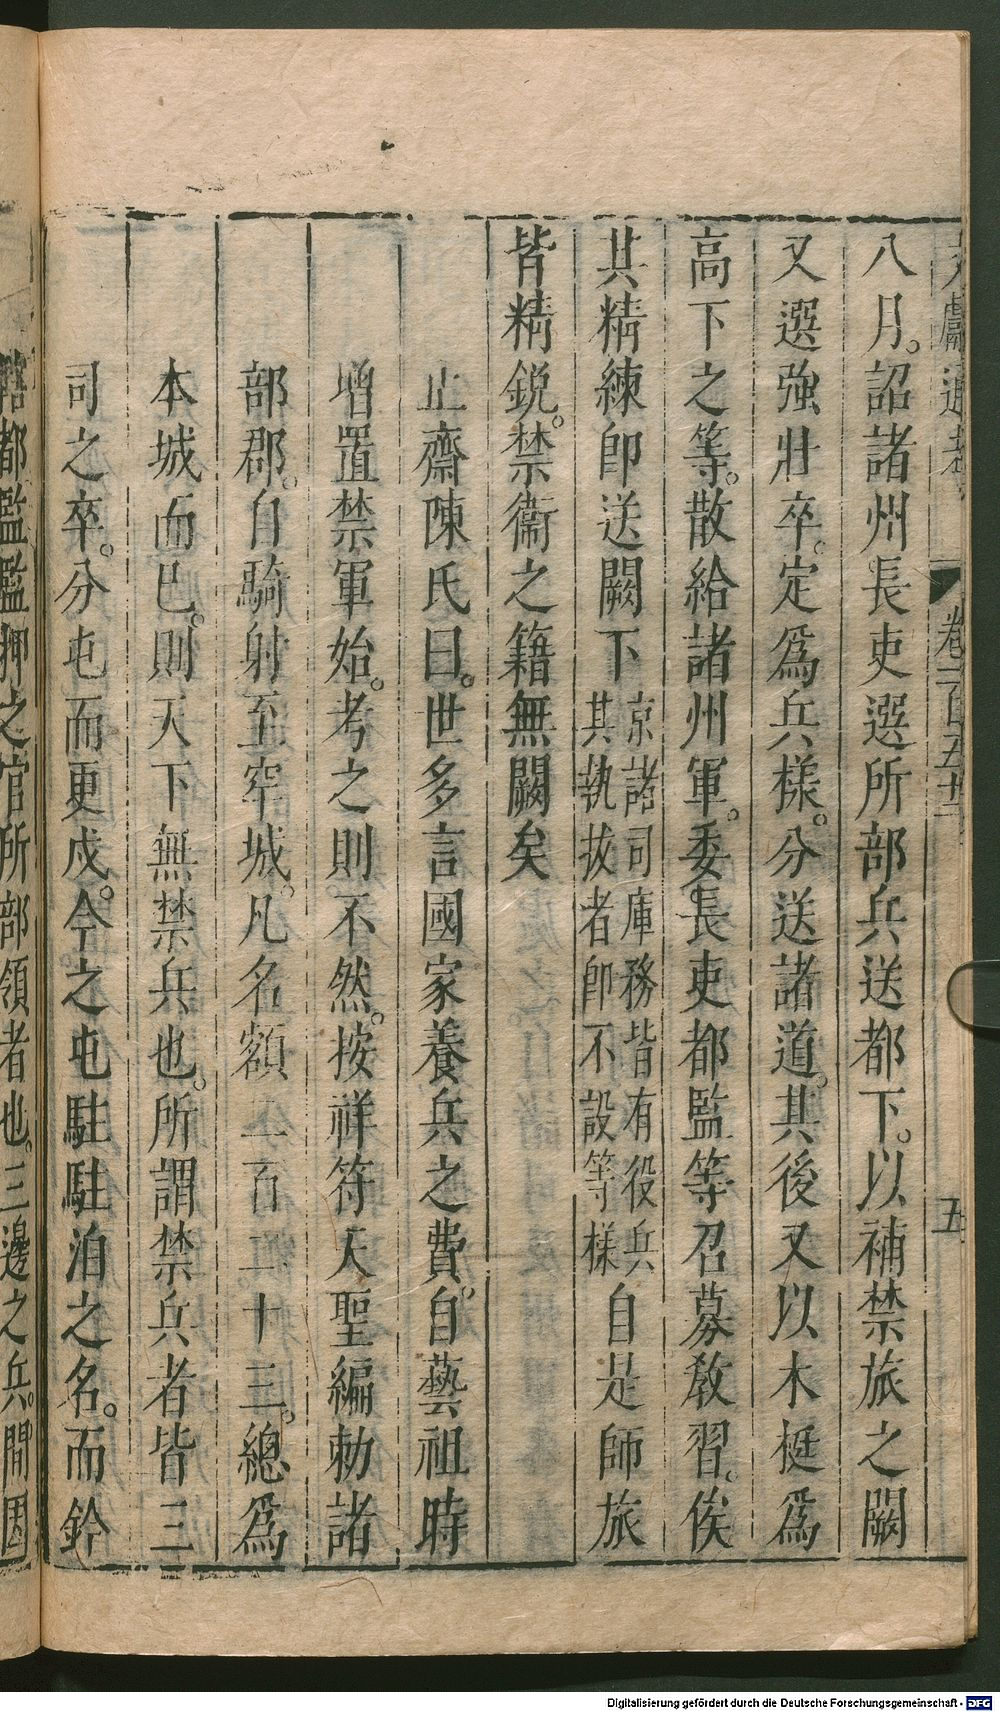 文獻通考 卷一百五十二 五
八月。詔諸州長吏選所部兵送都下。以補禁旅之闕
又選強壯卒。定爲兵樣。分送諸道。其後又以木梃爲
高下之等。散給諸州軍。委長吏都監等召募教習。俟
其精練卽送闕下京諸司庫務皆有役兵其執技者卽不設等樣自是師旅
皆精銳。禁衞之籍無闕矣
止齋陳氏曰。世多言國家養兵之費。自藝祖時
增置禁軍始。考之則不然。按祥符天聖編勅諸
部郡。自騎射至牢城。凡名額二百二十三。總爲
本城而已。則天下無禁兵也。所謂禁兵者皆三
司之卒。分屯而更戍。今之屯駐駐泊之名。而鈐
轄都監監押之官所部領者也。三邊之兵。間因
Digitalisierung gefördert durch die Deutsche Forschungsgemeinschaft - DFG